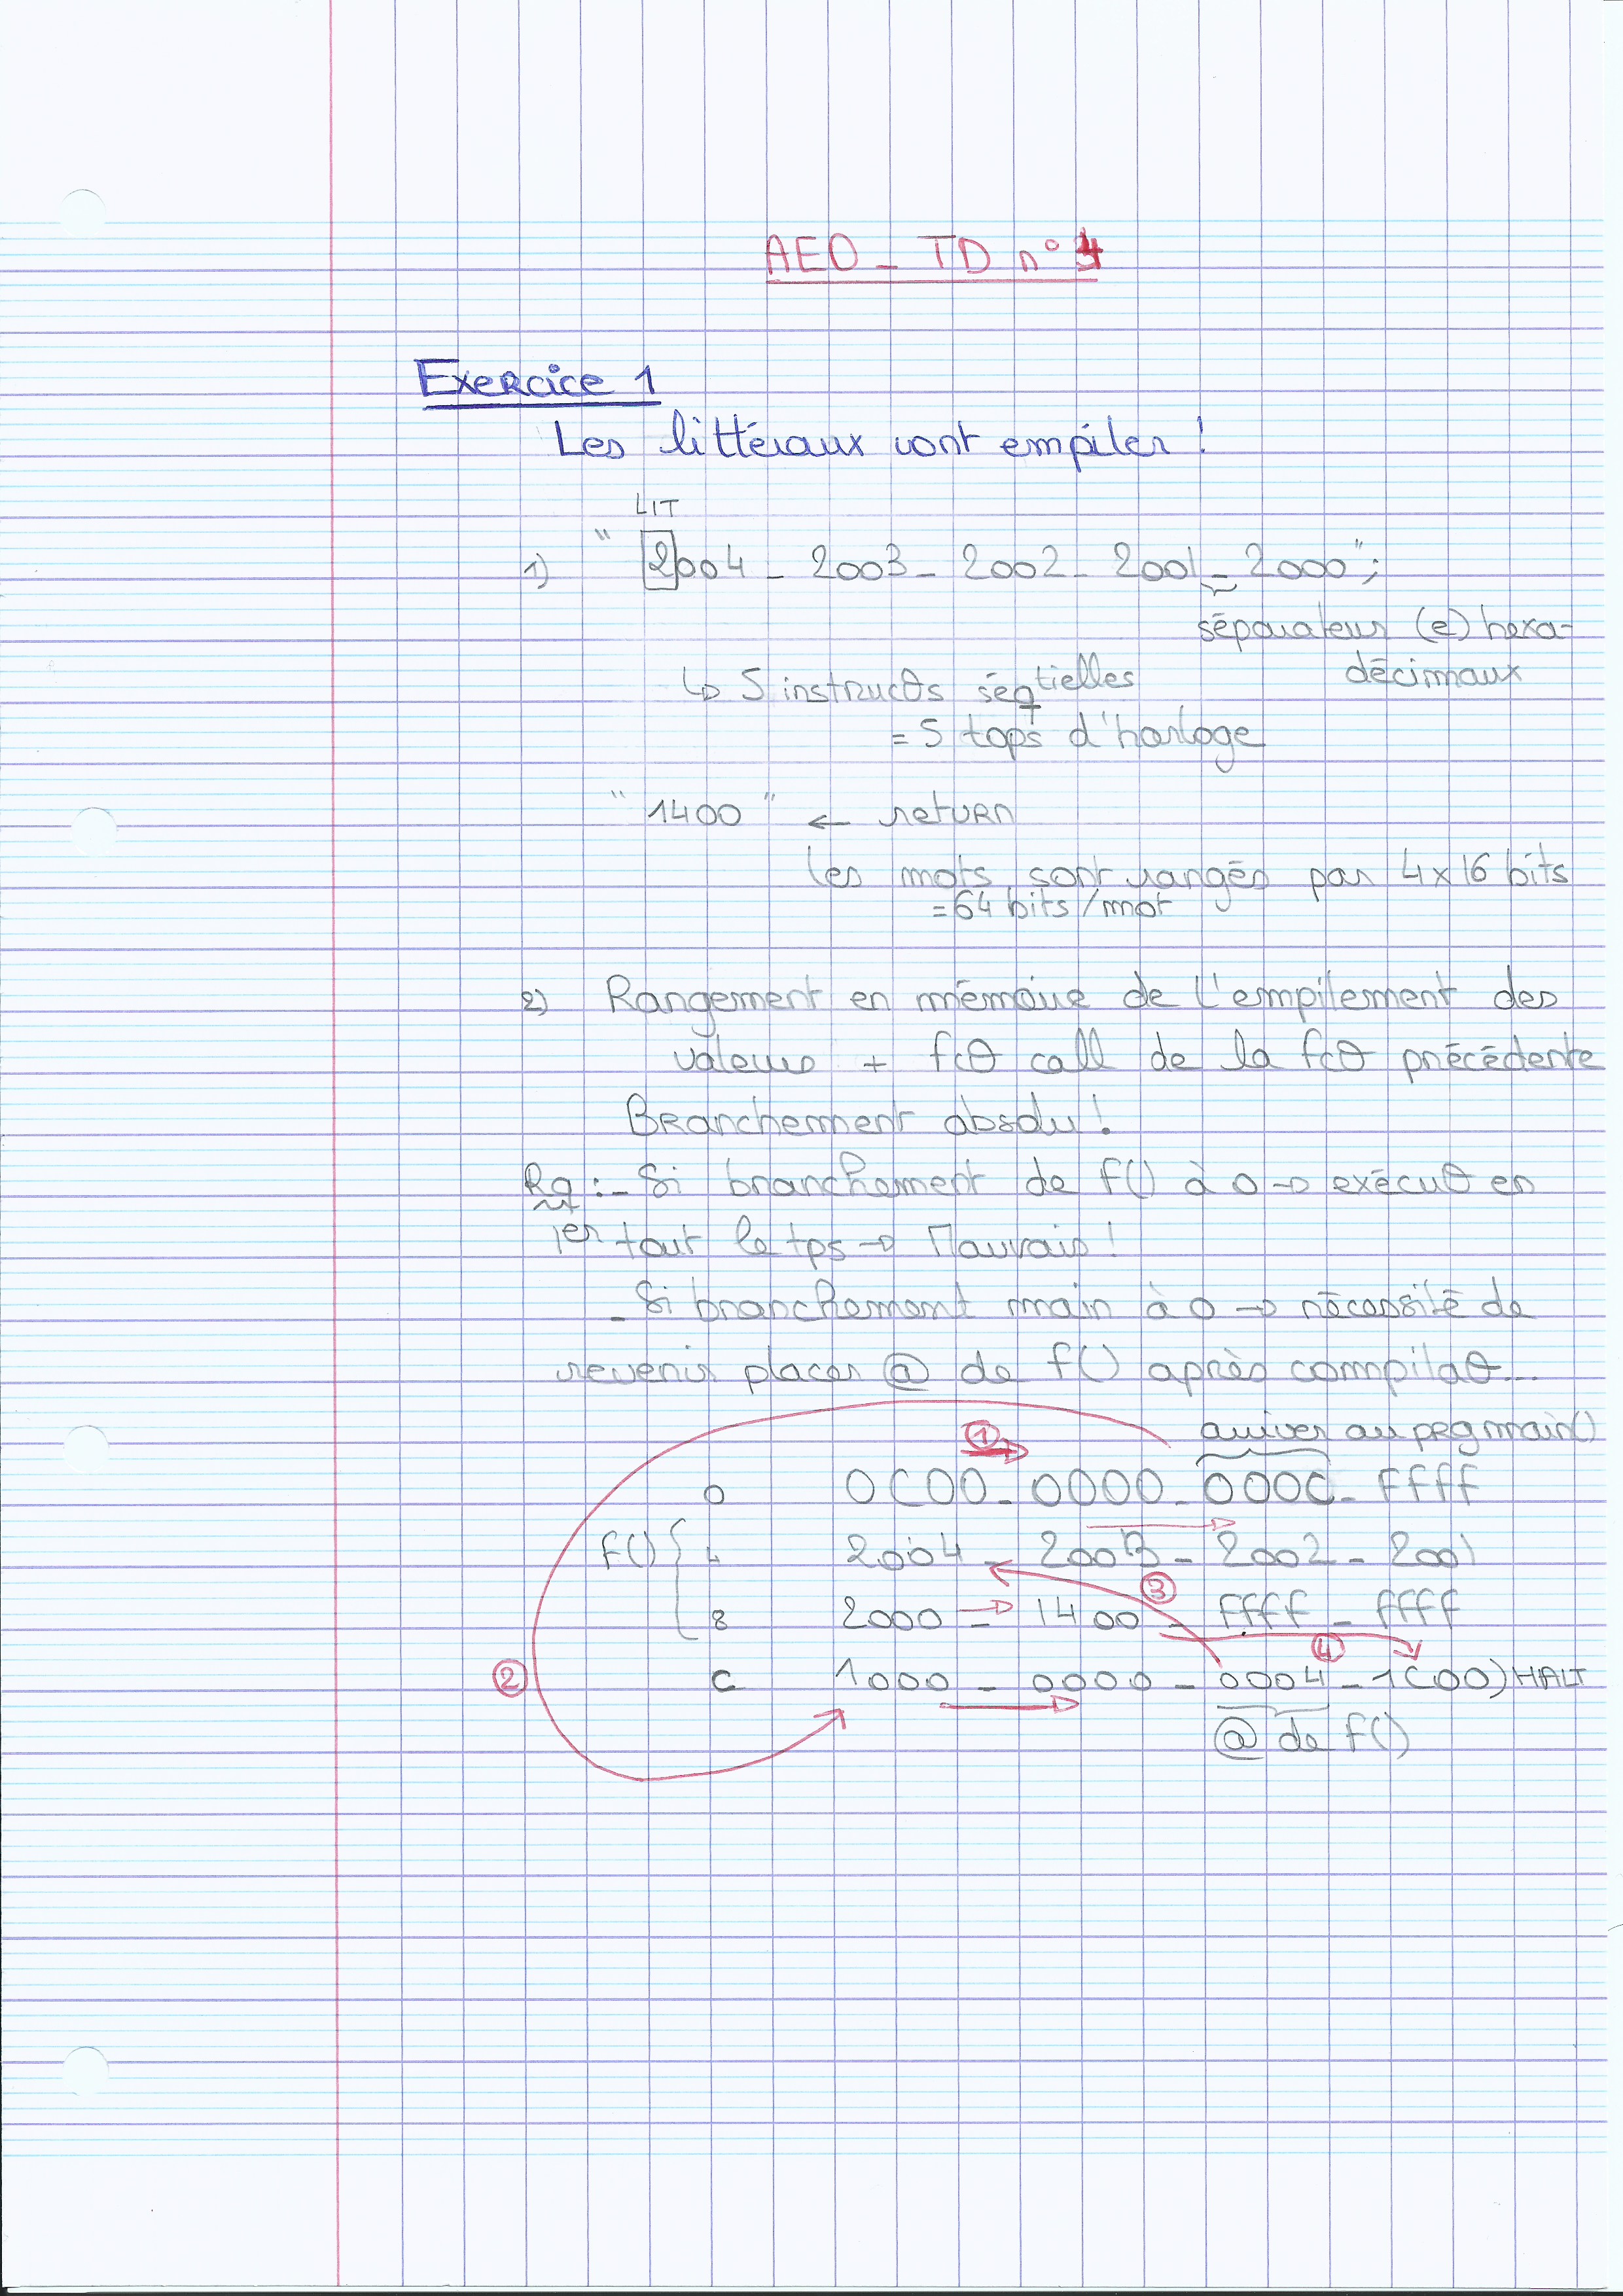 AEO - TD n° 4
Exercice 1
Les littéraux vont empiler !
LIT
1) " 2004 - 2003 - 2002 - 2001 - 2000 " ;
séparateur (e) hexa-
décimaux
↳ 5 instructθs séqtielles
= 5 tops d'horloge
" 1400 " ← return
les mots sont rangés par 4 x 16 bits
= 64 bits / mot
2) Rangement en mémoire de l'empilement des
valeurs + fcθ call de la fcθ précédente
Branchement absolu !
Rq : - Si branchement de f() à 0 → exécutθ en
1er tout le tps → Mauvais !
- Si branchement main à 0 → nécessité de
revenir placer @ de f() après compilatθ...
① arriver au prg main()
0 0C00 - 0000 - 000C - ffff
f() 4 2004 - 2003 - 2002 - 2001
③
8 2000 - 1400 - ffff - ffff
④
② C 1000 - 0000 - 0004 - 1C00) HALT
@ de f()